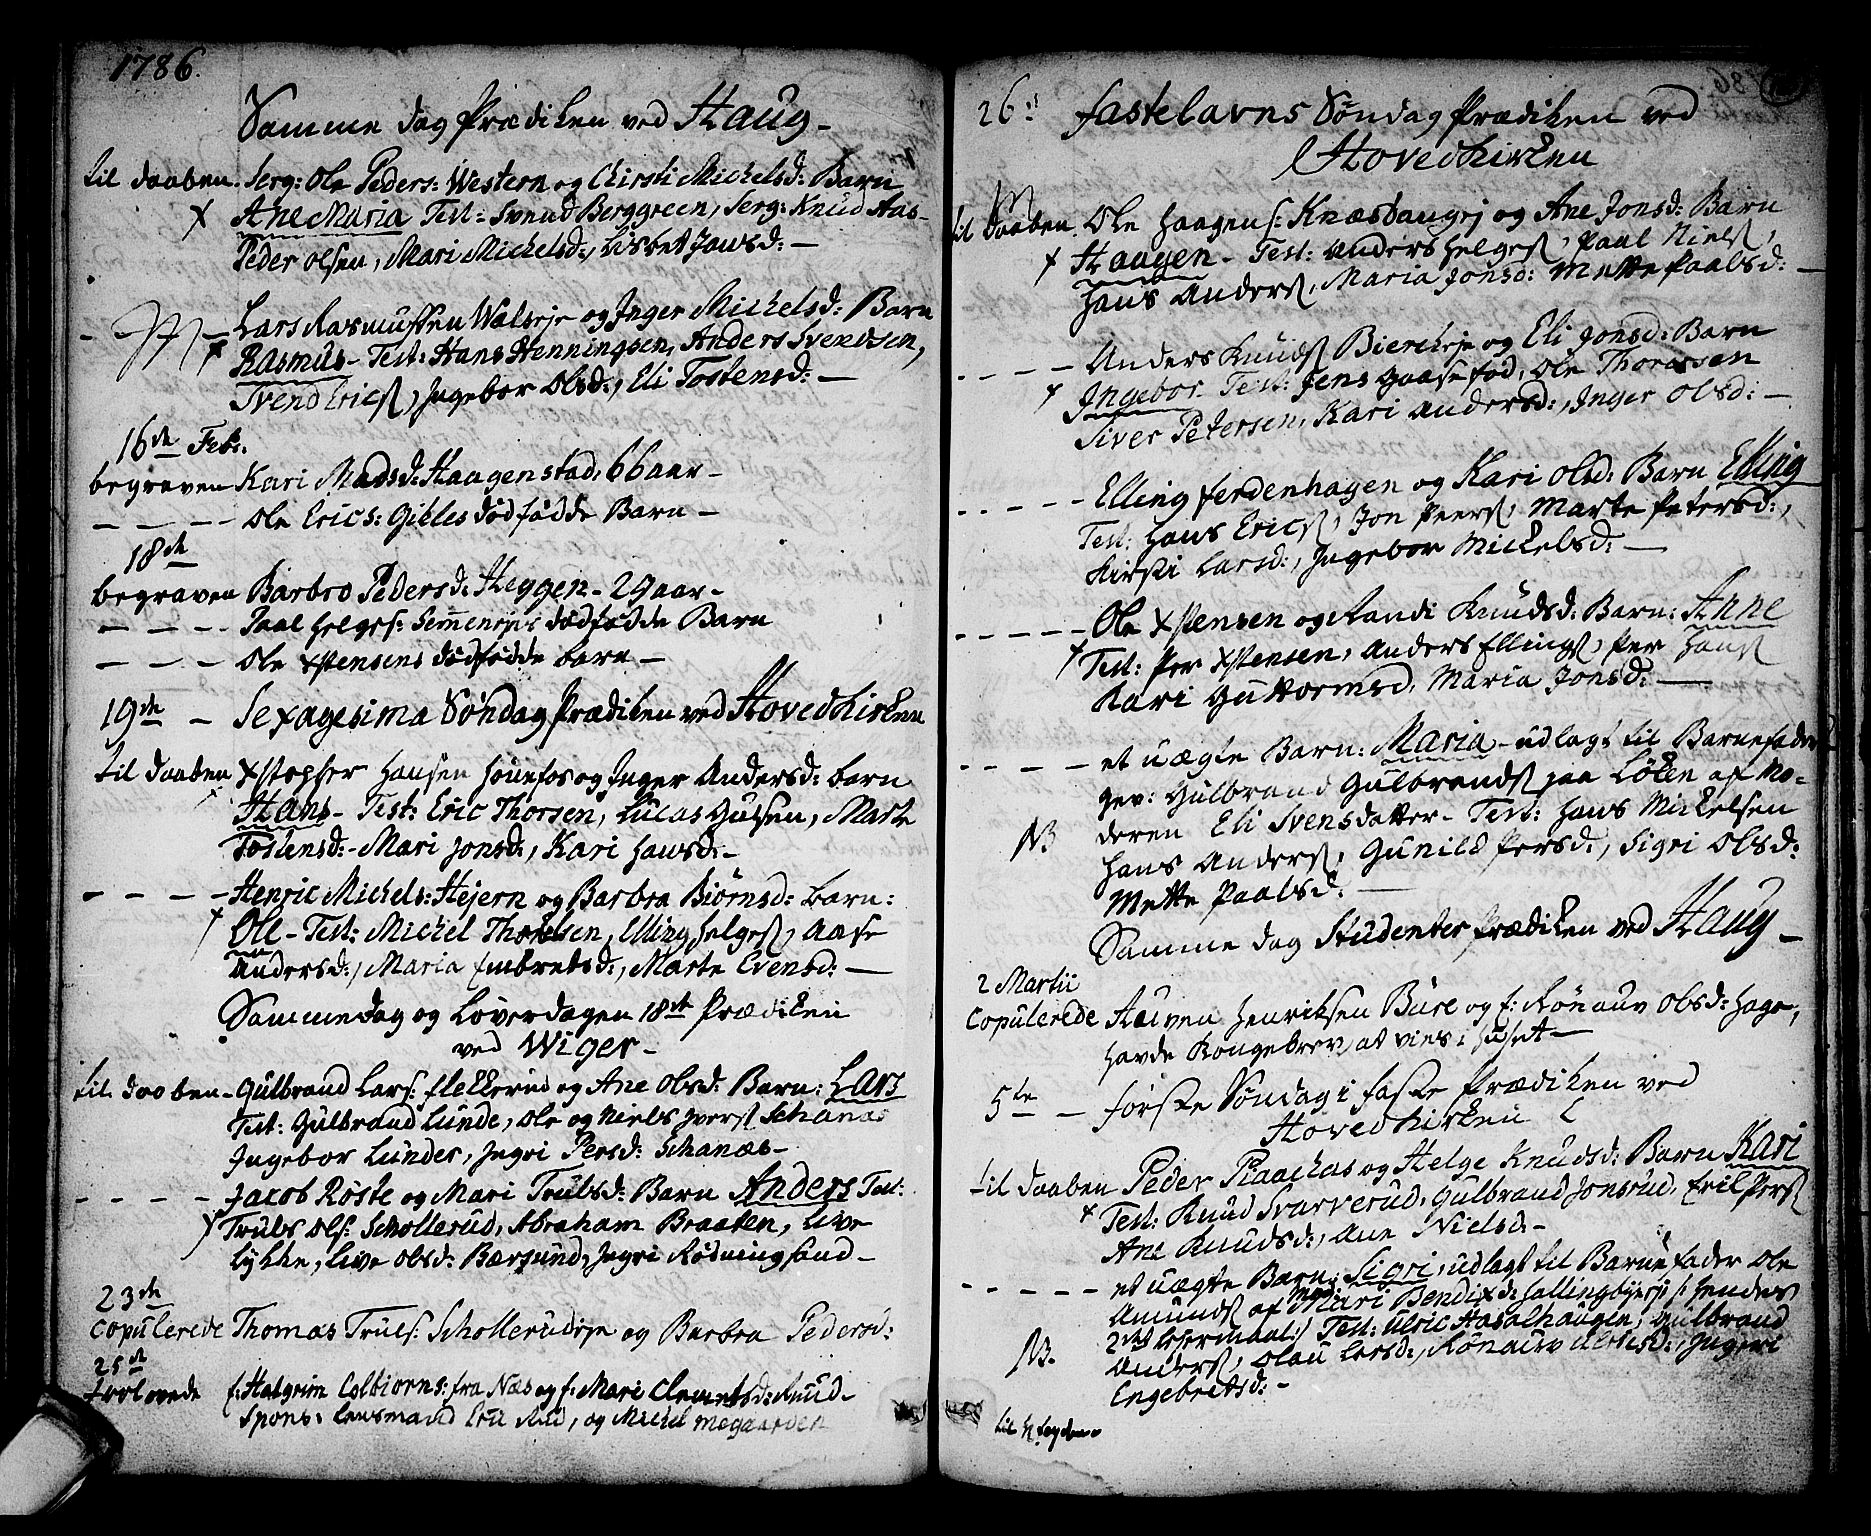 1786.
Samme dag Prædiken ved Haug -
til daaben. Serg: Ole Peders: Western og Chirsti Mickelsd: Barn
x Ane Maria Test: Svend Berggreen, Serg: Knud Aas-
Peder Olsen, Mari Mickelsd:, Lisbet Jansd: -
- Lars Rasmussen Walseje og Inger Mickelsd: Barn
x Rasmus - Test: Hans Henningsen, Anders Svendsen,
Svend Erics, Ingebor Olsd:, Eli Tostensd: -
16de Feb.
begraven Kari Madsd: Haagenstad, 66 aar -
- - - - Ole Erics: Gikles dødfødde Barn -
18de
begraven Barbro Pedersd: Heggen - 29 aar -
- - - - Paal Helges: Semmenejes dødfødde Barn
- - - - Ole Xstensens dødfødde barn -
19de - Sexagesima Søndag Prædiken ved Hovedkirken
til daaben Xstopher Hansen Hønefos og Inger Andersd: barn
x Hans - Test: Eric Thorsen, Lucas Gulsen, Marte
Tostensd: - Mari Jonsd:, Kari Hansd: -
- - - - Henric Mickels: Hejern og Barbra Biørnsd: barn:
x Ole - Test: Mickel Thorsen, Elling Helges, Aase
Andersd:, Maria Embretsd:, Marte Evensd: -
Samme dag og Løverdagen 18de Prædiken
ved Wiger -
til daaben - Gulbrand Lars: Flekkerud og Ane Olsd: Barn: Lars
Test: Gulbrand Lunde, Ole og Niels Ivers Schanæs
Ingebor Lunder, Ingri Persd: Schanæs -
- - - - Jacob Røste og Mari Trulsd: Barn Anders Test:
x Truls Ols: Schollerud, Abraham Braaten, Live
Lykke, Live Olsd: Bærsund, Ingri Rødningsand -
23de
Copulerede Thomas Truls: Schollerudeje og Barbra Pedersd:
25de
Trolovede f: Halgrim Colbiorns: fra Næs og f: Mari Clemetsd: Ruud -
Spons: Lensmand Eric Ruud, og Mickel Moegaarden
26: Fastelavns Søndag Prædiken ved
Hovedkirken
til daaben. Ole Haagens: Knæsbangej og Ane Jonsd: Barn
x Haagen - Test: Anders Helges, Paal Niels,
Hans Anders, Maria Jonsd: Mette Paalsd: -
- - - - Anders Knuds Biercheje og Eli Jonsd: Barn
x Ingebor. Test: Jens Gaasefod, Ole Thorssen
Siver Petersen, Kari Andersd:, Inger Olsd: -
- - - - Elling Ferdenhagen og Kari Olsd: Barn Elling
Test: Hans Erics, Jon Peers, Marte Petersd:,
Kirsti Larsd:, Ingebor Mickelsd: -
- - - - - Ole Xstensen og Randi Knudsd: Barn: Anne
x Test: Per Xstensen, Anders Ellings, Per Hans
Kari Guttormsd, Maria Jonsd: -
- - - - et uægte Barn: Maria - udlagt til Barnefader
gev: Gulbrand Gulbrands paa Løken af Mo-
NB deren Eli Svensdatter - Test: Hans Mickelsen
Hans Anders, Gunild Persd:, Sigri Olsd:
Mette Paalsd: -
Samme dag Studenter Prædiken ved Haug -
2 Martii
Copulerede Hauven Henriksen Bure og f: Rønauv Olsd: Hage,
havde Kongebrev at vies i Huset -
5te - Første Søndag i Faste Prædiken ved
Hovedkirken
til daaben Peder Plaachas og Helge Knudsd: Barn Kari
x Test: Knud Svarverud, Gulbrand Jonsrud, Eric Pers
Ane Knudsd:, Ane Nielsd: -
- - - - - et uægte Barn: Sigri, udlagt til Barnefader Ole
Amunds af Mari Bendixd: Hallingbyeje /: hendes
NB. 2det Lejermaal :/ Test: Ulric Hasalhaugen, Gulbrand
Anders, Olau Larsd:, Rønauv Ulricsd:, Ingeri
Engebretsd: -